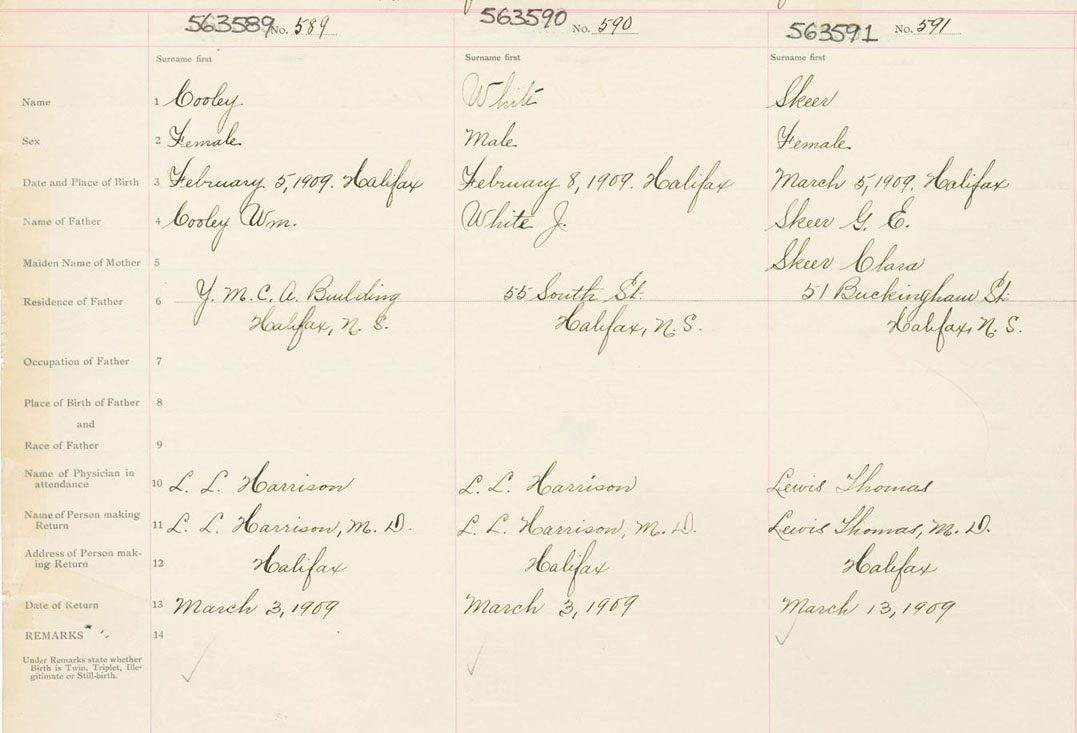 563589 No. 589 563590 No. 590 563591 No. 591
Surname first Surname first Surname first
Name 1 Cooley White Skeer
Sex 2 Female Male Female
Date and Place of Birth 3 February 5, 1909. Halifax February 8, 1909. Halifax March 5, 1909. Halifax
Name of Father 4 Cooley Wm. White J. Skeer G. E.
Maiden Name of Mother 5 Skeer Clara
Residence of Father 6 Y. M. C. A. Building 55 South St. 51 Buckingham St.
Halifax, N. S. Halifax, N. S. Halifax, N. S.
Occupation of Father 7
Place of Birth of Father 8
and
Race of Father 9
Name of Physician in
attendance 10 L. L. Harrison L. L. Harrison Lewis Thomas
Name of Person making
Return 11 L. L. Harrison, M. D. L. L. Harrison, M. D. Lewis Thomas, M. D.
Address of Person mak-
ing Return 12 Halifax Halifax Halifax
Date of Return 13 March 3, 1909 March 3, 1909 March 13, 1909
REMARKS 14
Under Remarks state whether
Birth is Twin, Triplet, Ille-
gitimate or Still-birth.